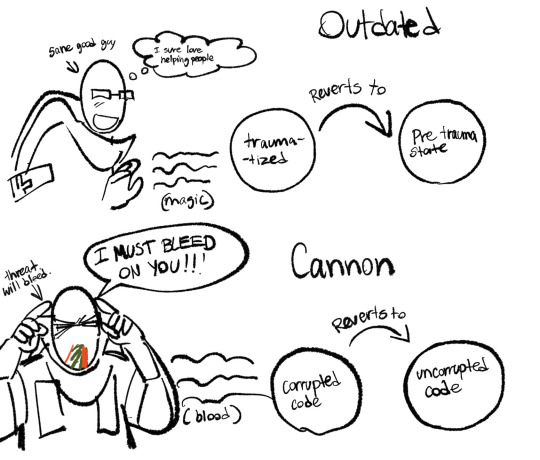 Outdated
Sane good guy
I sure love
helping people
Reverts to
trauma-
-tized
Pre trauma
state
(magic)
I MUST BLEED
ON YOU!!!
Cannon
threat
will bleed.
Reverts to
corrupted
code
uncorrupted
code
(blood)